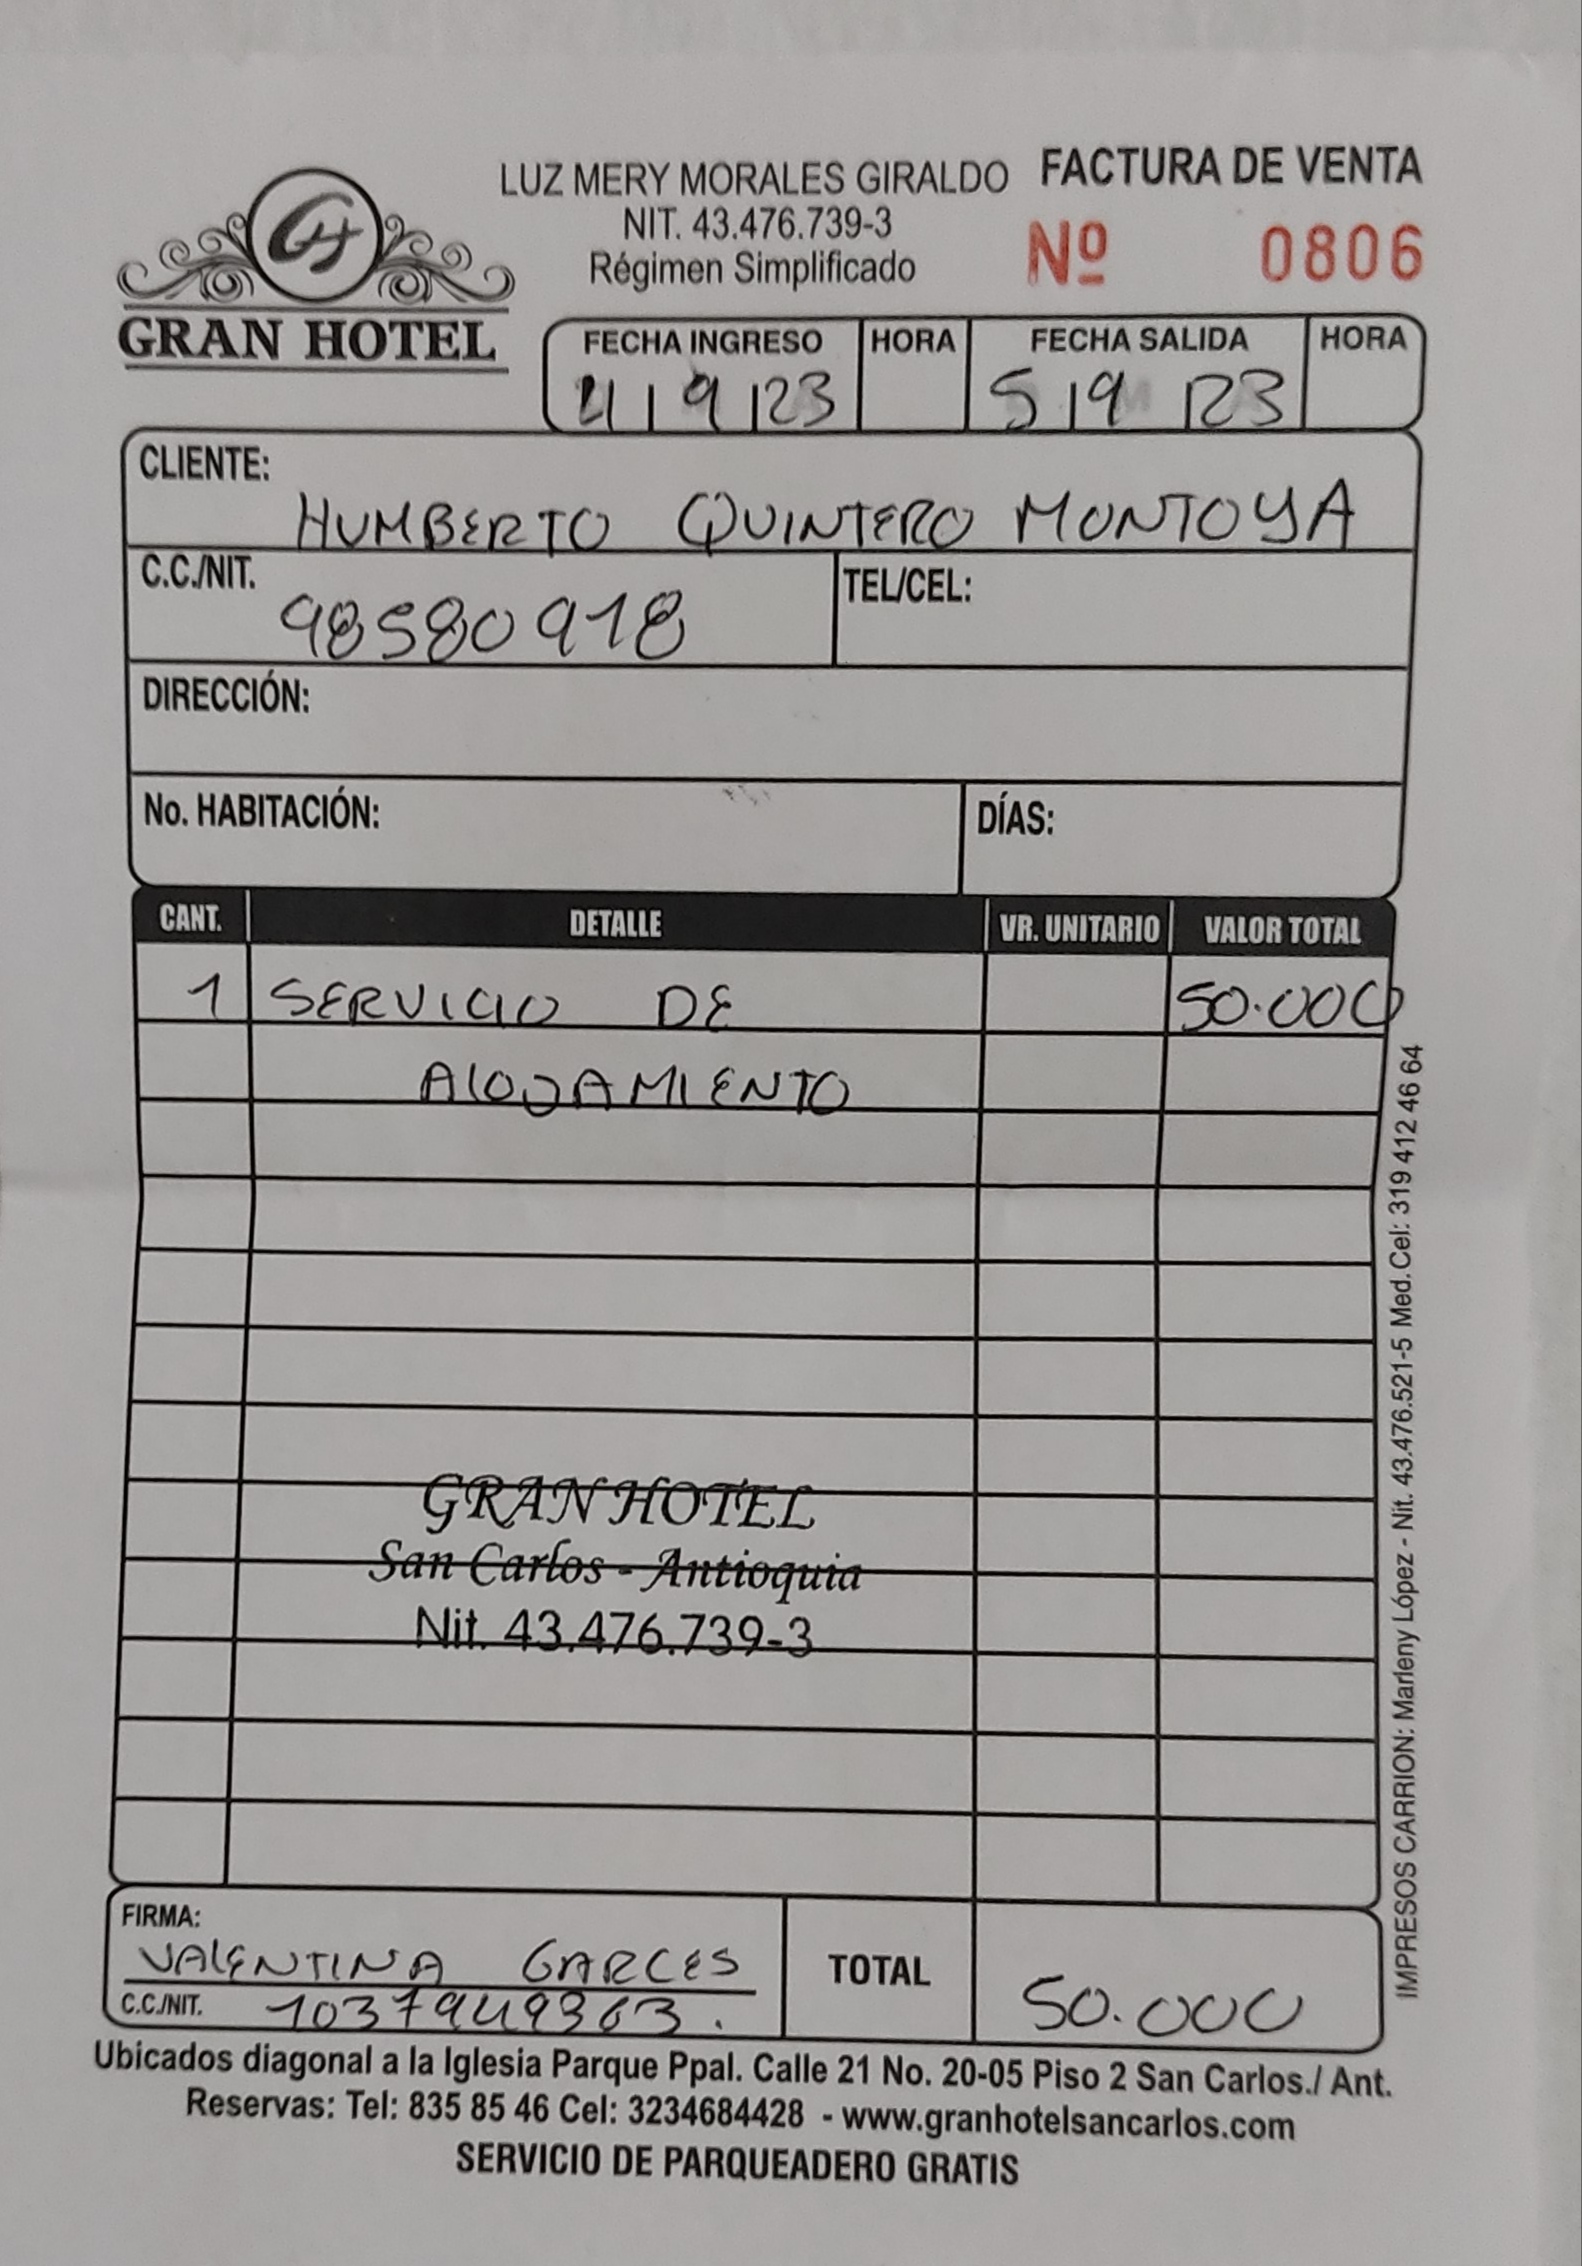 GH
GRAN HOTEL
LUZ MERY MORALES GIRALDO
NIT. 43.476.739-3
Régimen Simplificado
FACTURA DE VENTA
Nº 0806
FECHA INGRESO HORA FECHA SALIDA HORA
4 | 9 | 23 5 | 9 | 23
CLIENTE:
HUMBERTO QUINTERO MONTOYA
C.C./NIT. 98580918 TEL/CEL:
DIRECCIÓN:
No. HABITACIÓN: DÍAS:
CANT. DETALLE VR. UNITARIO VALOR TOTAL
1 SERVICIO DE 50.000
ALOJAMIENTO
GRAN HOTEL
San Carlos - Antioquia
Nit. 43.476.739-3
FIRMA:
VALENTINA GARCES
C.C./NIT. 1037949363.
TOTAL 50.000
Ubicados diagonal a la Iglesia Parque Ppal. Calle 21 No. 20-05 Piso 2 San Carlos./ Ant.
Reservas: Tel: 835 85 46 Cel: 3234684428 - www.granhotelsancarlos.com
SERVICIO DE PARQUEADERO GRATIS
IMPRESOS CARRION: Marleny López - Nit. 43.476.521-5 Med. Cel: 319 412 46 64